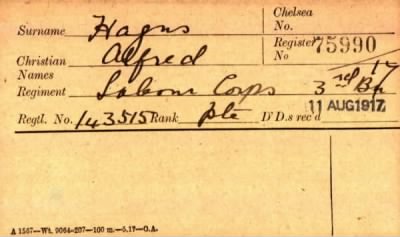 Surname Hagus Chelsea No.
Christian Names Alfred Register No 75990/17
Regiment Labour Corps 3rd Bn
Regtl. No. 143515 Rank Pte D'D.s rec'd 11 AUG 1917
A 1567—Wt. 9064-207—100 m.—5.17—O.A.